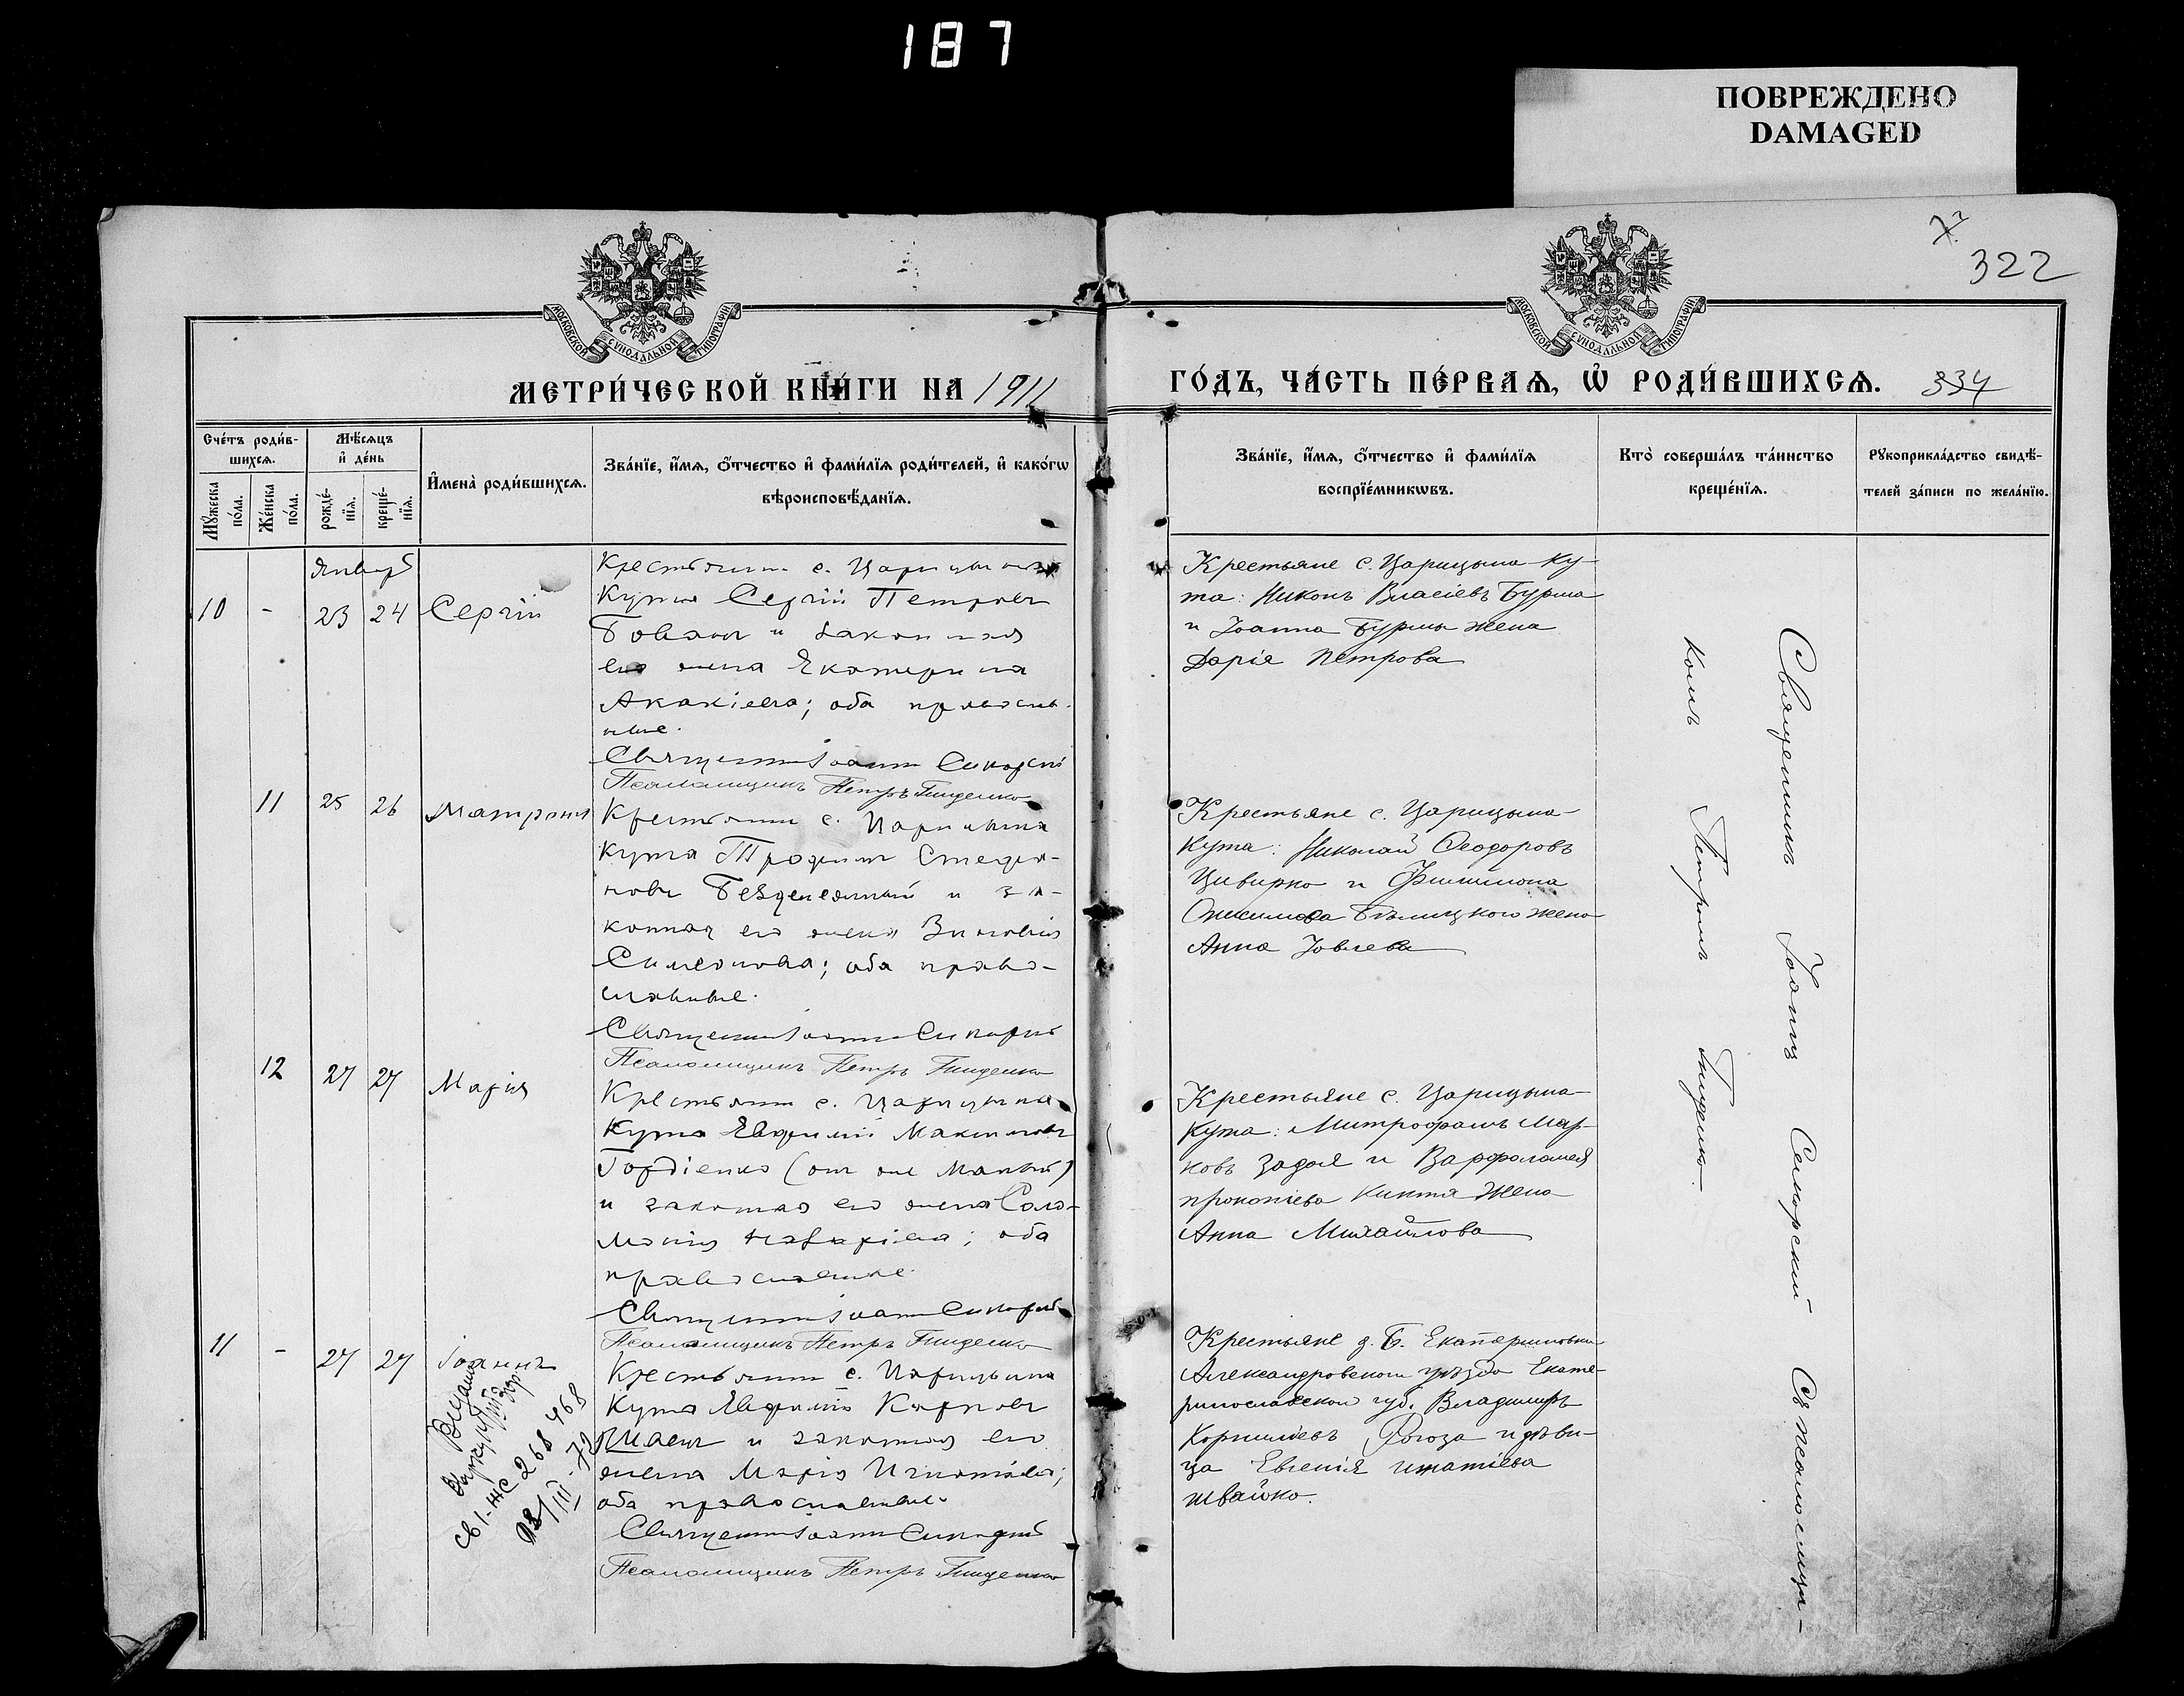 187
ПОВРЕЖДЕНО
DAMAGED
322
МОСКОВСКОЙ СѴНОДАЛЬНОЙ ТИПОГРАФІИ
МОСКОВСКОЙ СѴНОДАЛЬНОЙ ТИПОГРАФІИ
МЕТРИ́ЧЕСКОЙ КНИ́ГИ НА 1911
ГО́ДЪ, ЧА́СТЬ ПЕ́РВАѦ, Ѡ҆ РОДИ́ВШИХСѦ. 334
Сче́тъ роди́в-
шихсѧ.
Мѣ́сѧцъ
и҆ де́нь
Мꙋ́жеска
по́ла.
Же́нска
по́ла.
рожде́-
нїѧ.
креще́-
нїѧ.
И҆мена̀ роди́вшихсѧ.
Зва́нїе, и҆́мѧ, ѻ҆́тчество и҆ фами́лїѧ роди́телей, и҆ како́гѡ
вѣроисповѣ́данїѧ.
Зва́нїе, и҆́мѧ, ѻ҆́тчество и҆ фами́лїѧ
воспрїе́мникѡвъ.
Кто̀ соверша́лъ та́инство
креще́нїѧ.
Рꙋкоприкла́дство свидѣ́-
телей за́писи по жела́нїю.
Январь
10 - 23 24 Сергій
Крестьянинъ с. Царицына
Кута Сергій Петровъ
Бовженъ и законная
его жена Екатерина
Акакіева; оба православ-
ные.
Священникъ Іоаннъ Сикорскій
Псаломщикъ Петръ Гниденко
Крестьяне с. Царицына-Ку-
та: Никонъ Власіевъ Бурма
и Іоанна Бурмы жена
Дарія Петрова
11 25 26 Матрона
Крестьянинъ с. Царицына
Кута Трофимъ Стефа-
новъ Безденежный и за-
конная его жена Зиновія
Симеонова; оба право-
славные.
Священникъ Іоаннъ Сикорскій
Псаломщикъ Петръ Гниденко
Крестьяне с. Царицына-
Кута: Николай Ѳеодоровъ
Цивирко и Филимона
Онисимова Бѣлицкого жена
Анна Іовлева
12 27 27 Марія
Крестьянинъ с. Царицына
Кута Евфимій Максимовъ
Гордіенко (онъ же )
и законная его жена Соло-
монія Назаріева; оба
православные.
Священникъ Іоаннъ Сикорскій
Псаломщикъ Петръ Гниденко
Крестьяне с. Царицына-
Кута: Митрофанъ Мар-
ковъ Задоя и Варфоломея
Прокопіева Киктя жена
Анна Михайлова
11 - 27 27 Іоаннъ
Крестьянинъ с. Царицына
Кута Евфимій Карповъ
и законная его
жена Марія Игнатіева;
оба православные.
Священникъ Іоаннъ Сикорскій
Псаломщикъ Петръ Гниденко
Крестьяне д. Б. Екатериновки
Александровского уѣзда Екате-
ринославской губ. Владимиръ
Корниліевъ Рогоза и дѣви-
ца Евгенія Игнатіева
Швайко.
268468
Священникъ Іоаннъ Сикорский Съ псаломщи-
комъ Петромъ Гниденко